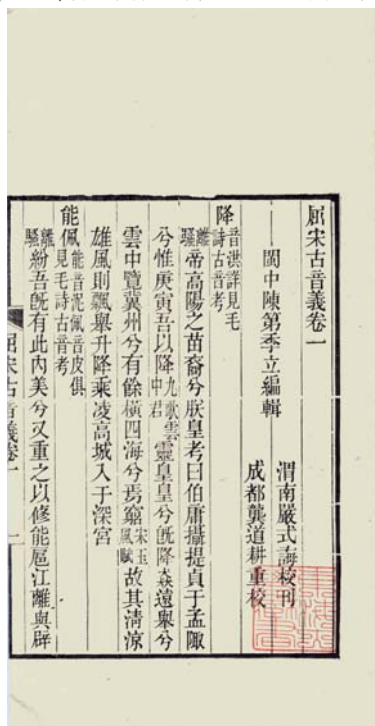 屈宋古音義卷一
閩中陳第季立編輯
渭南嚴式誨校刊
成都龔道耕重校
降音洪詳見毛詩古音考
離騷帝高陽之苗裔兮朕皇考曰伯庸攝提貞于孟陬
兮惟庚寅吾以降九歌雲中君靈皇皇兮既降猋遠舉兮
雲中覽冀州兮有餘橫四海兮焉窮宋玉風賦故其清涼
雄風則飄舉升降乘凌高城入于深宮
能佩能音泥佩音皮俱見毛詩古音考
離騷紛吾既有此內美兮又重之以修能扈江離與辟
屈宋古音義卷一 一